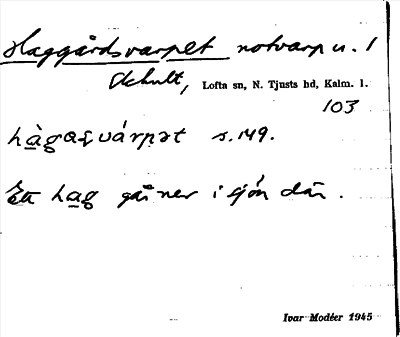 Haggårdsvarpet notvarp u. 1
Lofta sn, N. Tjusts hd, Kalm. l.
103
s. 149.
Ett hag går ner i sjön där.
Ivar Modéer 1945